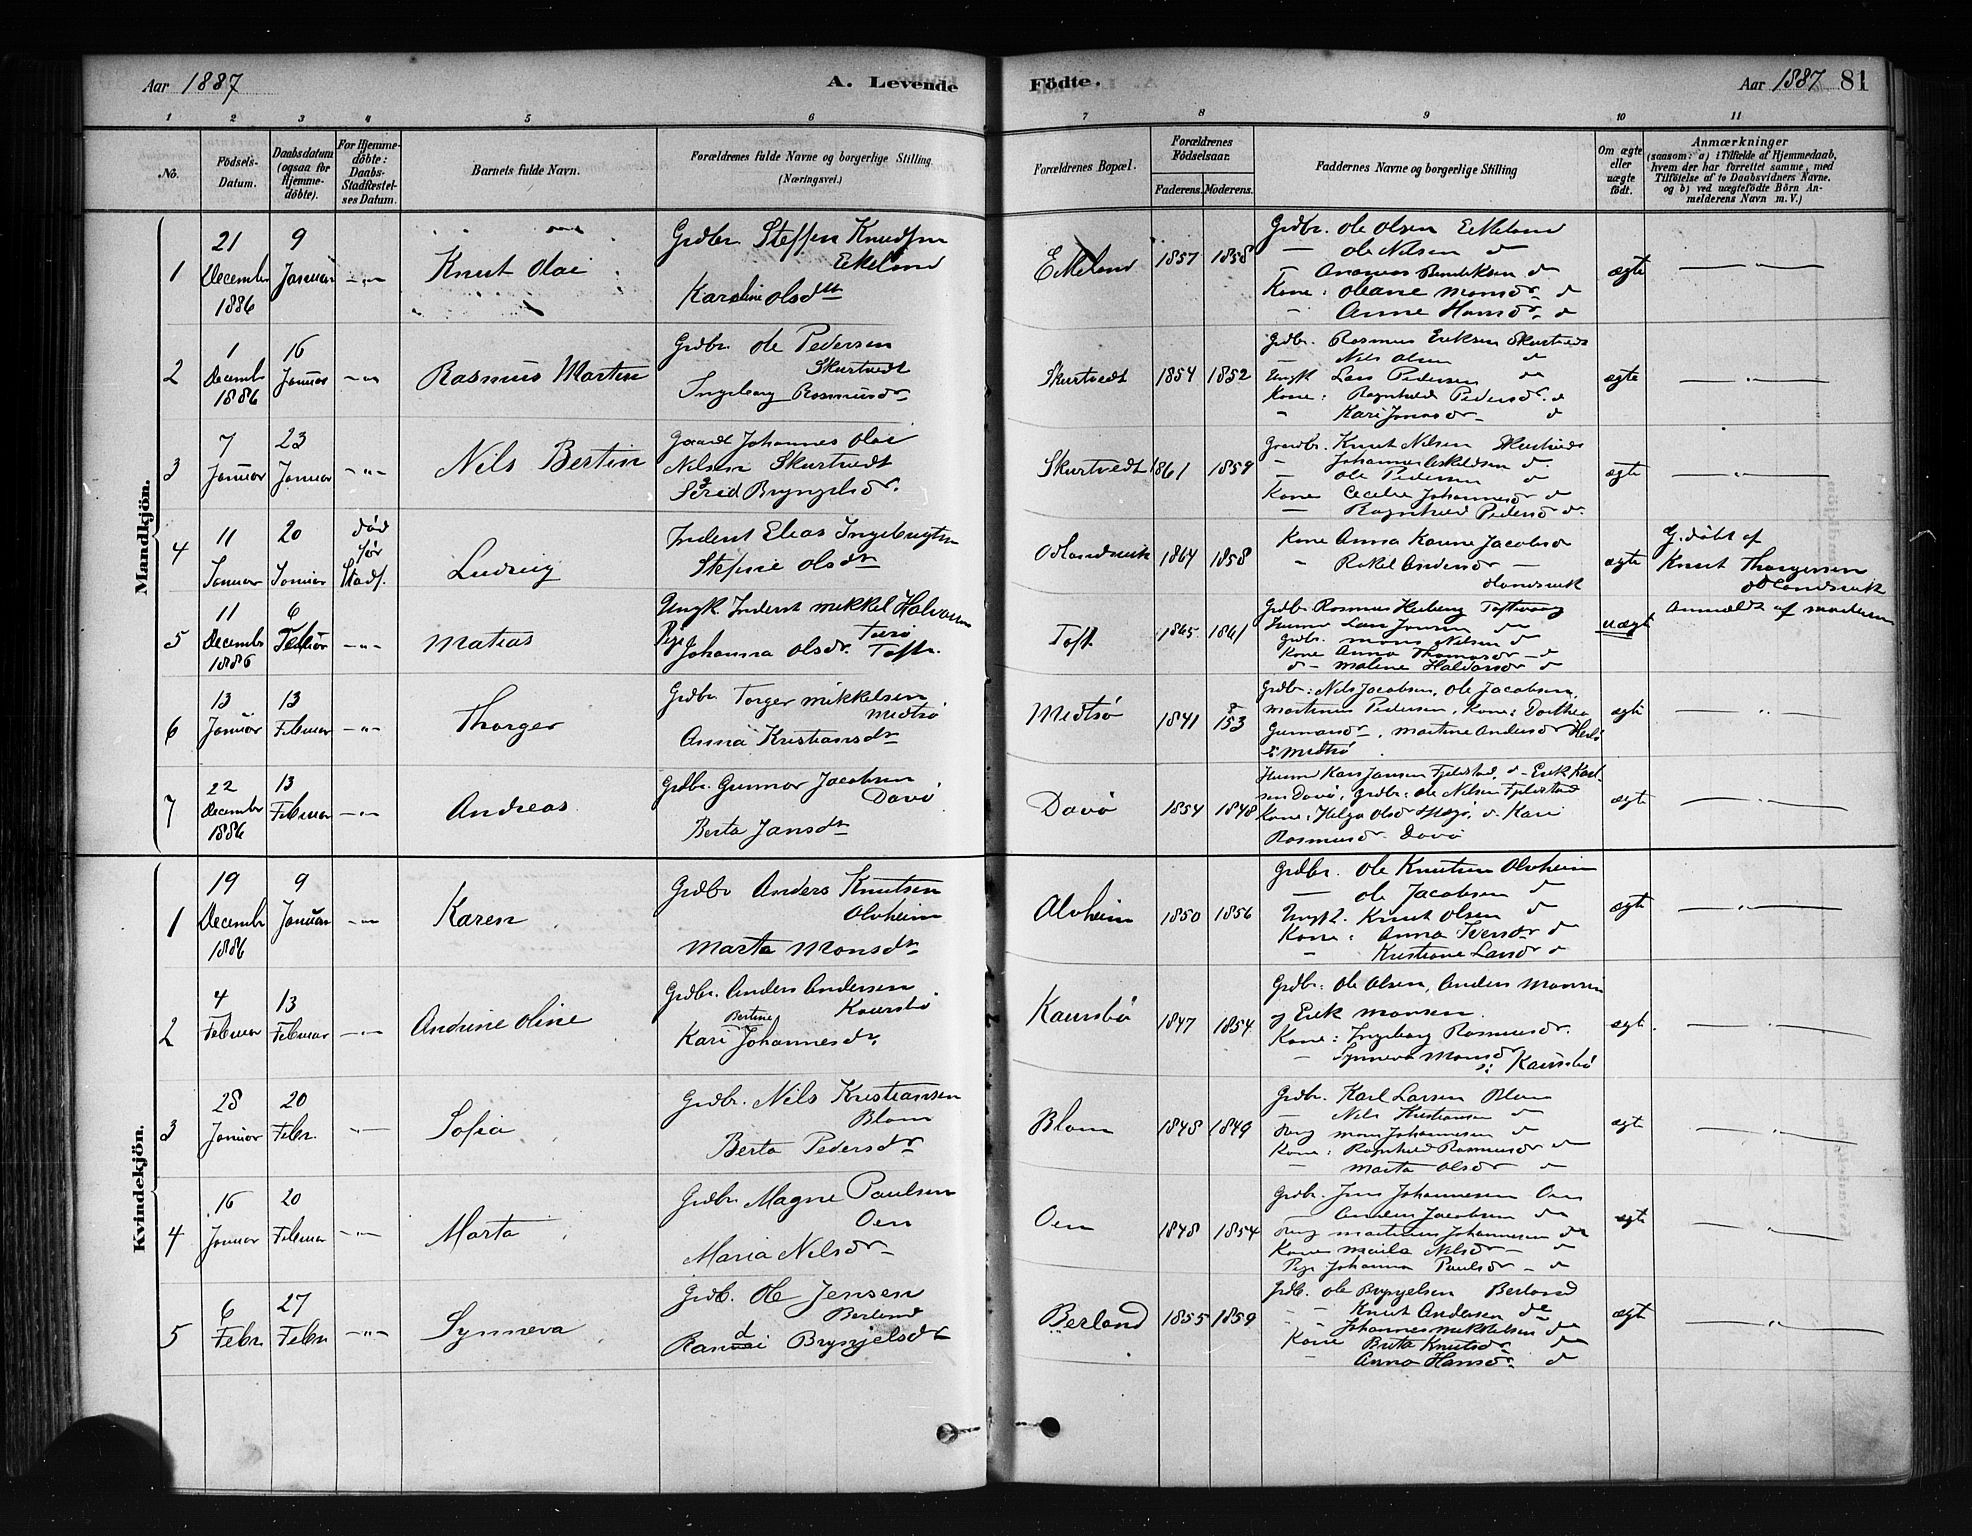 Aar 1887 A. Levende Födte. Aar 1887 81
1 2 3 4 5 6 7 8 9 10 11
No.
Födsels-Datum.
Daabsdatum (ogsaa for Hjemmedöbte).
For Hjemmedöbte: Daabs-Stadfæstelses Datum.
Barnets fulde Navn.
Forældrenes fulde Navne og borgerlige Stilling. (Næringsvei.)
Forældrenes Bopæl.
Forældrenes Födselsaar.
Faderens. Moderens.
Faddernes Navne og borgerlige Stilling
Om ægte eller uægte födt.
Anmærkninger
(saasom: a) i Tilfælde af Hjemmedaab,
hvem der har forrettet samme, med
Tilföielse af to Daabsvidners Navne,
og b) ved uægtefödte Börn An-
melderens Navn m. V.)
Mandkjön.
1
21 December 1886
9 Januar
Knut Olai
Grdbr. Steffen Knudsen
Eikeland
Karoline Olsdtr
Eikeland
1857 1858
Grdbr. Ole Olsen Eikeland
— Ole Nilsen d
— Ananias Bendiksen d
Kone: Oleane Monsdr d
" Anne Hansdr d
ægte
2
1 Decembr 1886
16 Januar
Rasmus Martin
Grdbr. Ole Pedersen
Skurtvedt
Ingeborg Rasmusdr
Skurtvedt
1854 1852
Grdbr. Rasmus Eriksen Skurtvedt
— Nils Olsen d
Ungk Lars Pedersen d
Kone: Ragnhild Pedersdr. d
" Kari Jonasdr d
ægte
3
7 Januar
23 Januar
Nils Bertin
Johannes Olai
Nilsen Skurtvedt
Bryngelsdr.
Skurtvedt
1861 1859
Knut Nilsen Skurtvedt
" Johannes Eskildsen d.
— Ole Pedersen d
Kone Cecelie Johannesdr d
— Ragnhild Pedersdr d.
ægte
4
11 Januar
20 Januar
død før Stadf.
Ludvig
Inderst Elias Ingebrigtsen
Stefine Olsdtr
1864 1858
Kone Anna Karine Jacobsdr
" Rakel Andersdr
ægte
Gj.døbt af
Knut Thorgersen
5
11 Decembr 1886
6 Februar
Matias
Ungk Inderst Mikkel Halvorsen
Pige Johanna Olsdr. Toft.
Toft.
1865 1861
Grdbr. Rasmus Toftevaag
Lars Jonsen d
Grdbr. Mons Nilsen d
Kone Anna Thomasdr d
d Malene Haldorsdr d
uægte
Anmeldt af moderen
6
13 Januar
13 Februar
Thorger
Grdbr. Torger Mikkelsen
Medtsø
Anna Kristiansdtr
Medtsø
1841 153
Grdbr: Nils Jacobsen, Ole Jacobsen,
Martinus Pedersen, Kone: Dorthea
Gunnarsdr, Martine Andersdr
Medtsø
ægte
7
22 December 1886
13 Februar
Andreas
Grdbr. Gunnar Jacobsen
Davø
Berta Jansdtr
Davø
1854 1848
Kars Jansen Fjeldstad, d Erik Karl-
sen Davø, Grdbr: Ole Nilsen Fjeldstad
Kone: Helga Olsdr d Kari
Rasmusdr Davø
ægte
Kvindekjön.
1
19 Decembr 1886
9 Januar
Karen
Grdbr Anders Knutsen
Alvheim
Marta Monsdtr
Alvheim
1850 1856
Grdbr. Ole Knutsen Alvheim
— Ole Jacobsen d
Ungk. Knut Olsen d
Kone: Anna Iversdr d
— Kristiane Larsdr d
ægte
2
4 Februar
13 Februar
Andrine Oline
Grdbr. Anders Andersen
Kaursbø
Bertine
Kari Johannesdr.
Kaursbø
1847 1854
Grdbr: Ole Olsen, Anders Monsen
og Erik Monsen.
Kone: Ingeborg Rasmusdr.
— Synneva Monsdr
Kaursbø
ægte
3
28 Januar
20 Febr.
Sofia
Grdbr. Nils Kristiansen
Blom
Berta Pedersdtr
Blom
1848 1849
Grdbr. Karl Larsen Blom
— Nils Kristiansen d
Ung Mons Johannesen d
Kone: Ragnhild Rasmusdr d
— Marta Olsdr d
ægte
4
16 Januar
20 Februar
Marta
Grdbr. Magne Paulsen
Oen
Maria Nilsdr
Oen
1848 1854
Grdbr. Jens Johannesen Oen
Anders Jacobsen d
Ung Martinus Johannesen d
Kone Nilsdr d
Pige Johanna Paulsdr d
ægte
5
6 Febr
27 Febr
Synneva
Grdb. Ole Jensen
Berland
Randi Bryngelsdtr
Berland
1855 1859
Grdb. Ole Bryngelsen Berland
— Knut Andersen d
" Johannes Mikkelsen d
Kone Brita Knutsdr d
Anna Hansdr d
ægte